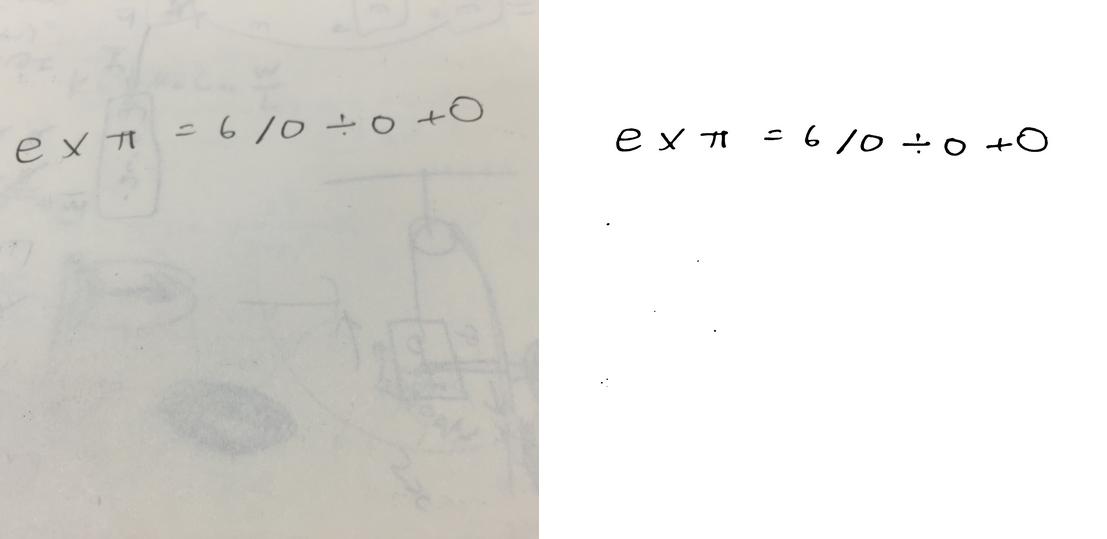 e x π = 6 / 0 ÷ 0 + 0
e x π = 6 / 0 ÷ 0 + 0